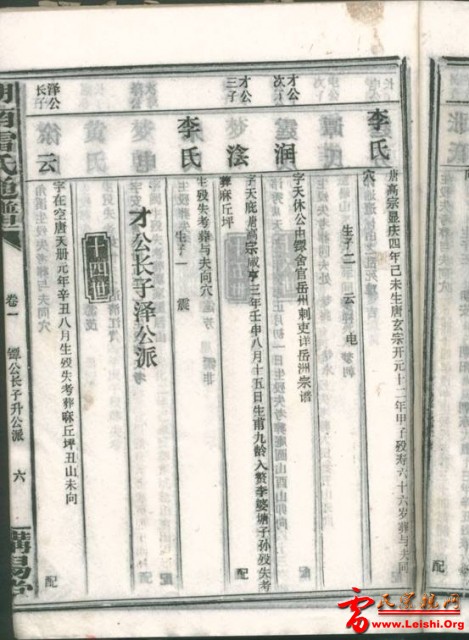 李氏
唐高宗显庆四年己未生唐玄宗开元十二年甲子殁寿六十六岁葬与夫同
穴
生子二 云 电
才公次子
润
字天休公由鐔舍官岳州刺吏详岳洲宗谱
配
才公三子
淦
字天庇唐高宗咸亨三年壬申八月十五日生甫九龄入赘李婆塘子孙殁失考
葬麻丘坪
配
李氏
生殁失考葬与夫同穴
生子一 震
才公长子泽公派
十四世
泽公长子
云
字在空唐天册元年辛丑八月生殁失考葬麻丘坪丑山未向
配
南雷氏通谱
卷一
鐔公长子升公派
六
雷氏宗亲网
www.Leishi.Org